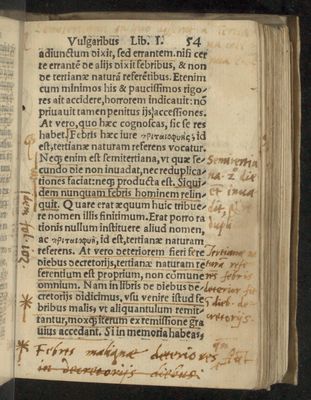 Vulgaribus Lib. I. 54
adiunctum dixit, sed errantem. nisi cer
te errantē de alijs dixit febribus, & non
de tertianæ naturā referētibus. Etenim
cum minimos his & paucissimos rigo-
res ait accidere, horrorem indicauit: nō
priuauit tamen penitus ijs accessiones.
At vero, quo hæc cognoscas, sic se res
habet. Febris hæc iure τριταιοφυὴς id
est, tertianæ naturam referens vocatur.
Neq; enim est semitertiana, vt quæ se-
cundo die non inuadat, nec reduplica-
tiones faciat: neq; producta est. Siqui
dem nunquam febris hominem relin
quit. Quare erat æquum huic tribue-
re nomen illis finitimum. Erat porro ra
tionis nullum instituere aliud nomen,
ac τριταιοφυὴ, id est, tertianæ naturam
referens. At vero deteriorem fieri fere
diebus decretorijs, tertianæ naturam re
ferentium est proprium, non cōmune
omnium. Nam in libris de diebus de-
cretorijs didicimus, vsu venire istud fe
bribus malis, vt aliquantulum remit-
tantur, moxq; iterum ex remissione gra
uius accedant. Si in memoria habeas,
Semitertia
na. 2 die
et inua
dit, &
dupli
Tertianæ na
turā refe
rēs febris
deterior fit
diebus de
cretorijs
Febres malignæ deteriores
in decretorijs diebus